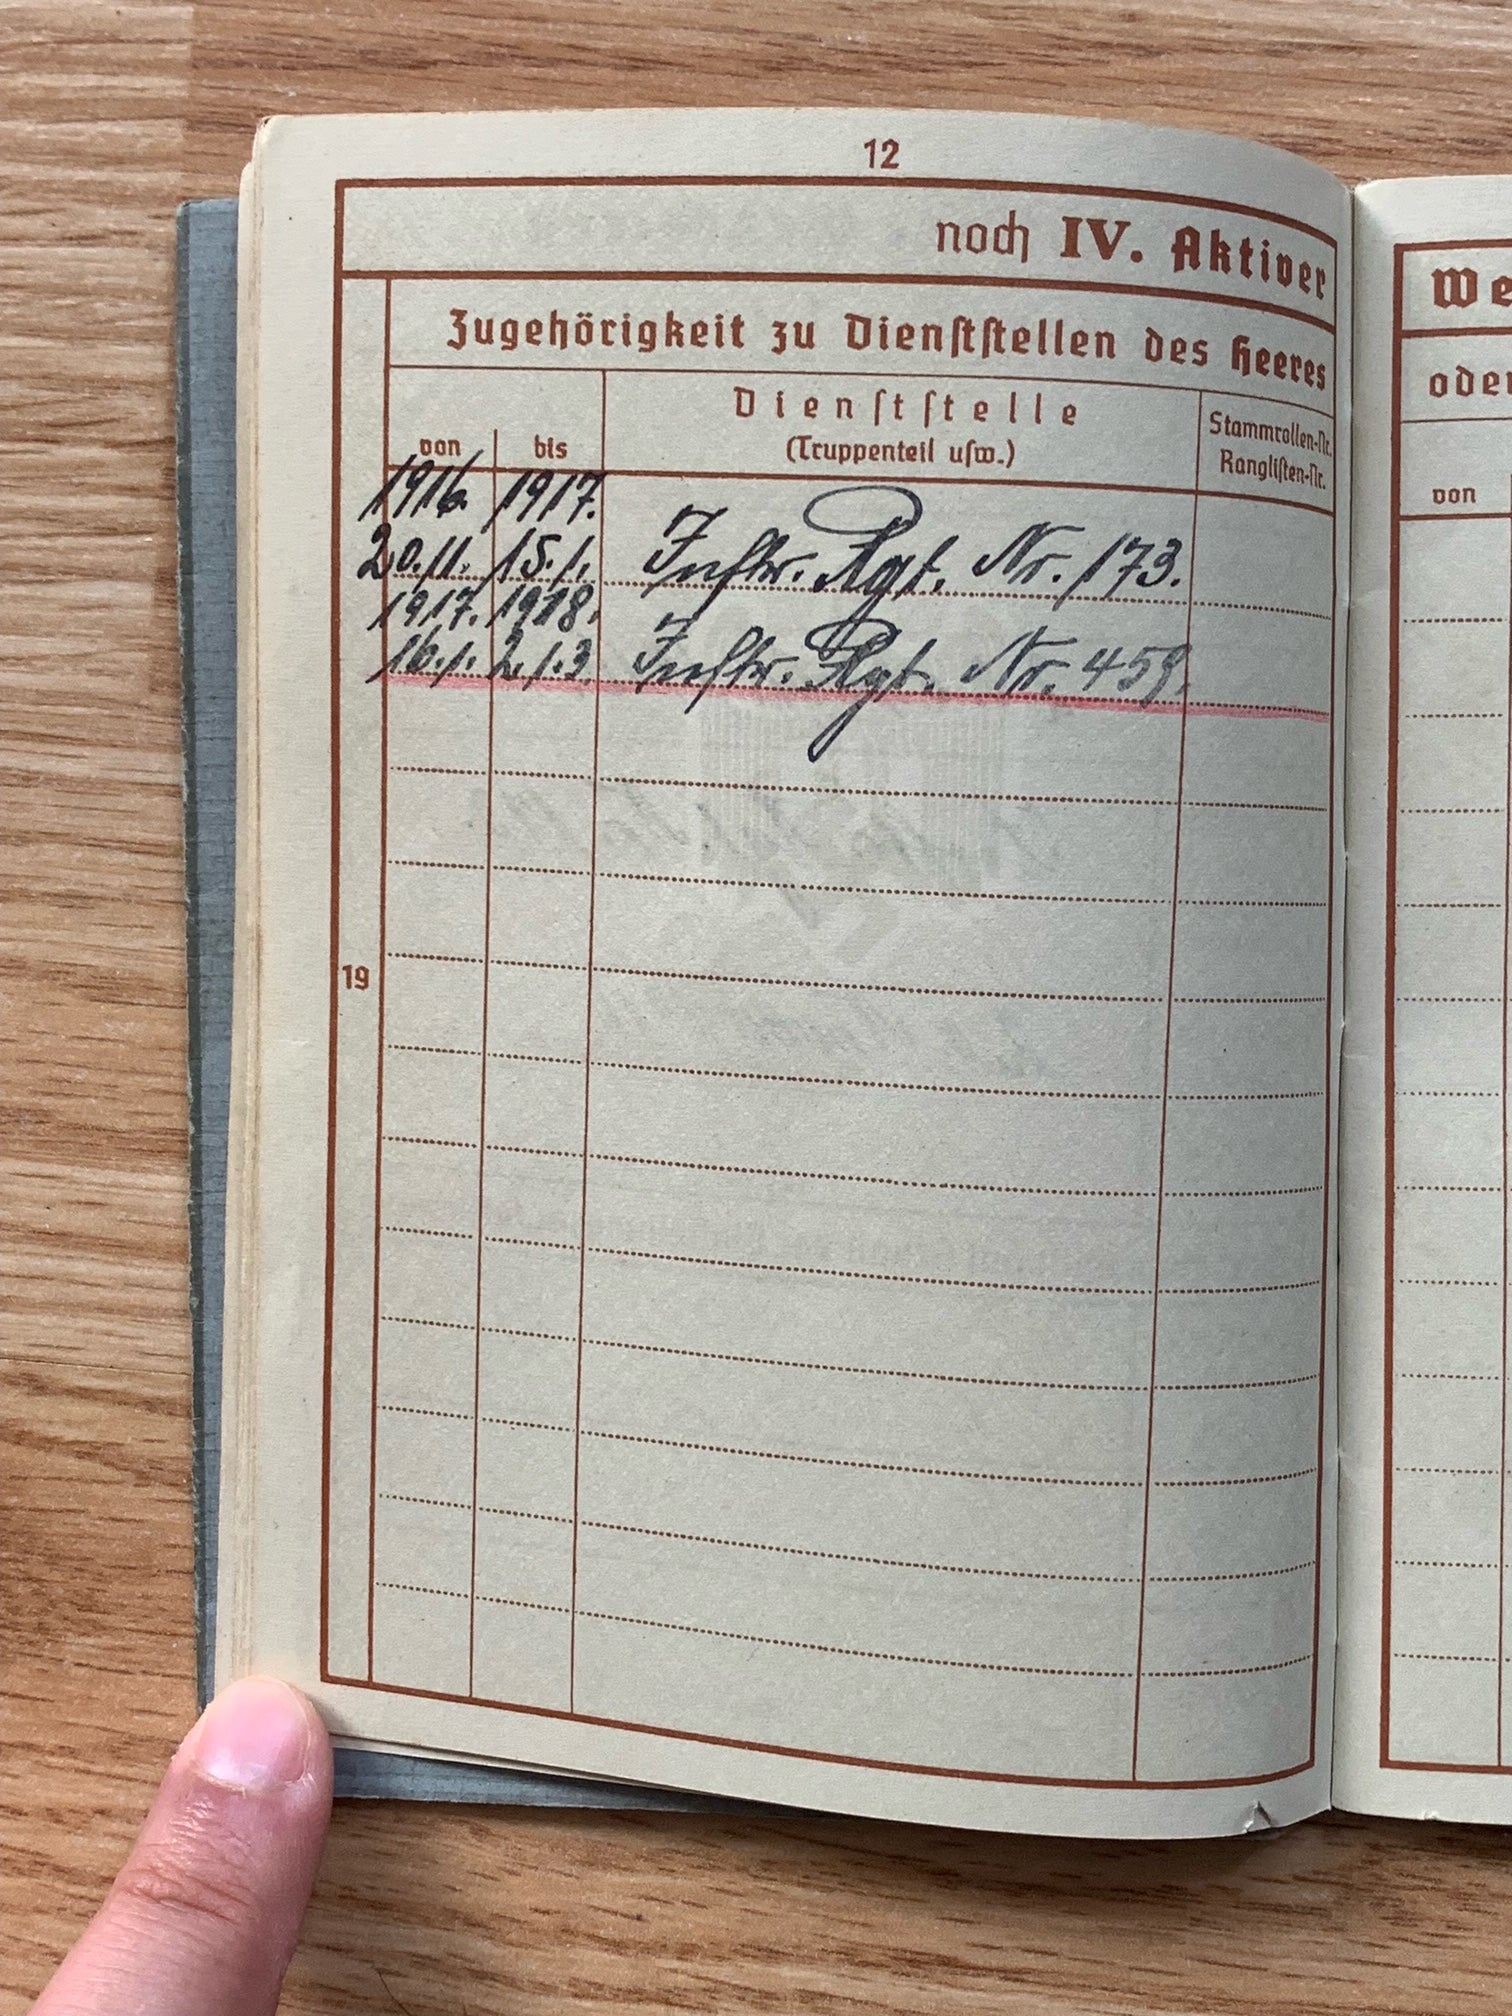 12
noch IV. Aktiver
Zugehörigkeit zu Dienststellen des Heeres
von
bis
Dienststelle
(Truppenteil usw.)
Stammrollen-Nr.
Ranglisten-Nr.
1916. 1917.
20.11. 15.1. Inftr. Rgt. Nr. 173.
1917. 1918.
16.1. 2.1.3. Inftr. Rgt. Nr. 459.
19
We
oder
von